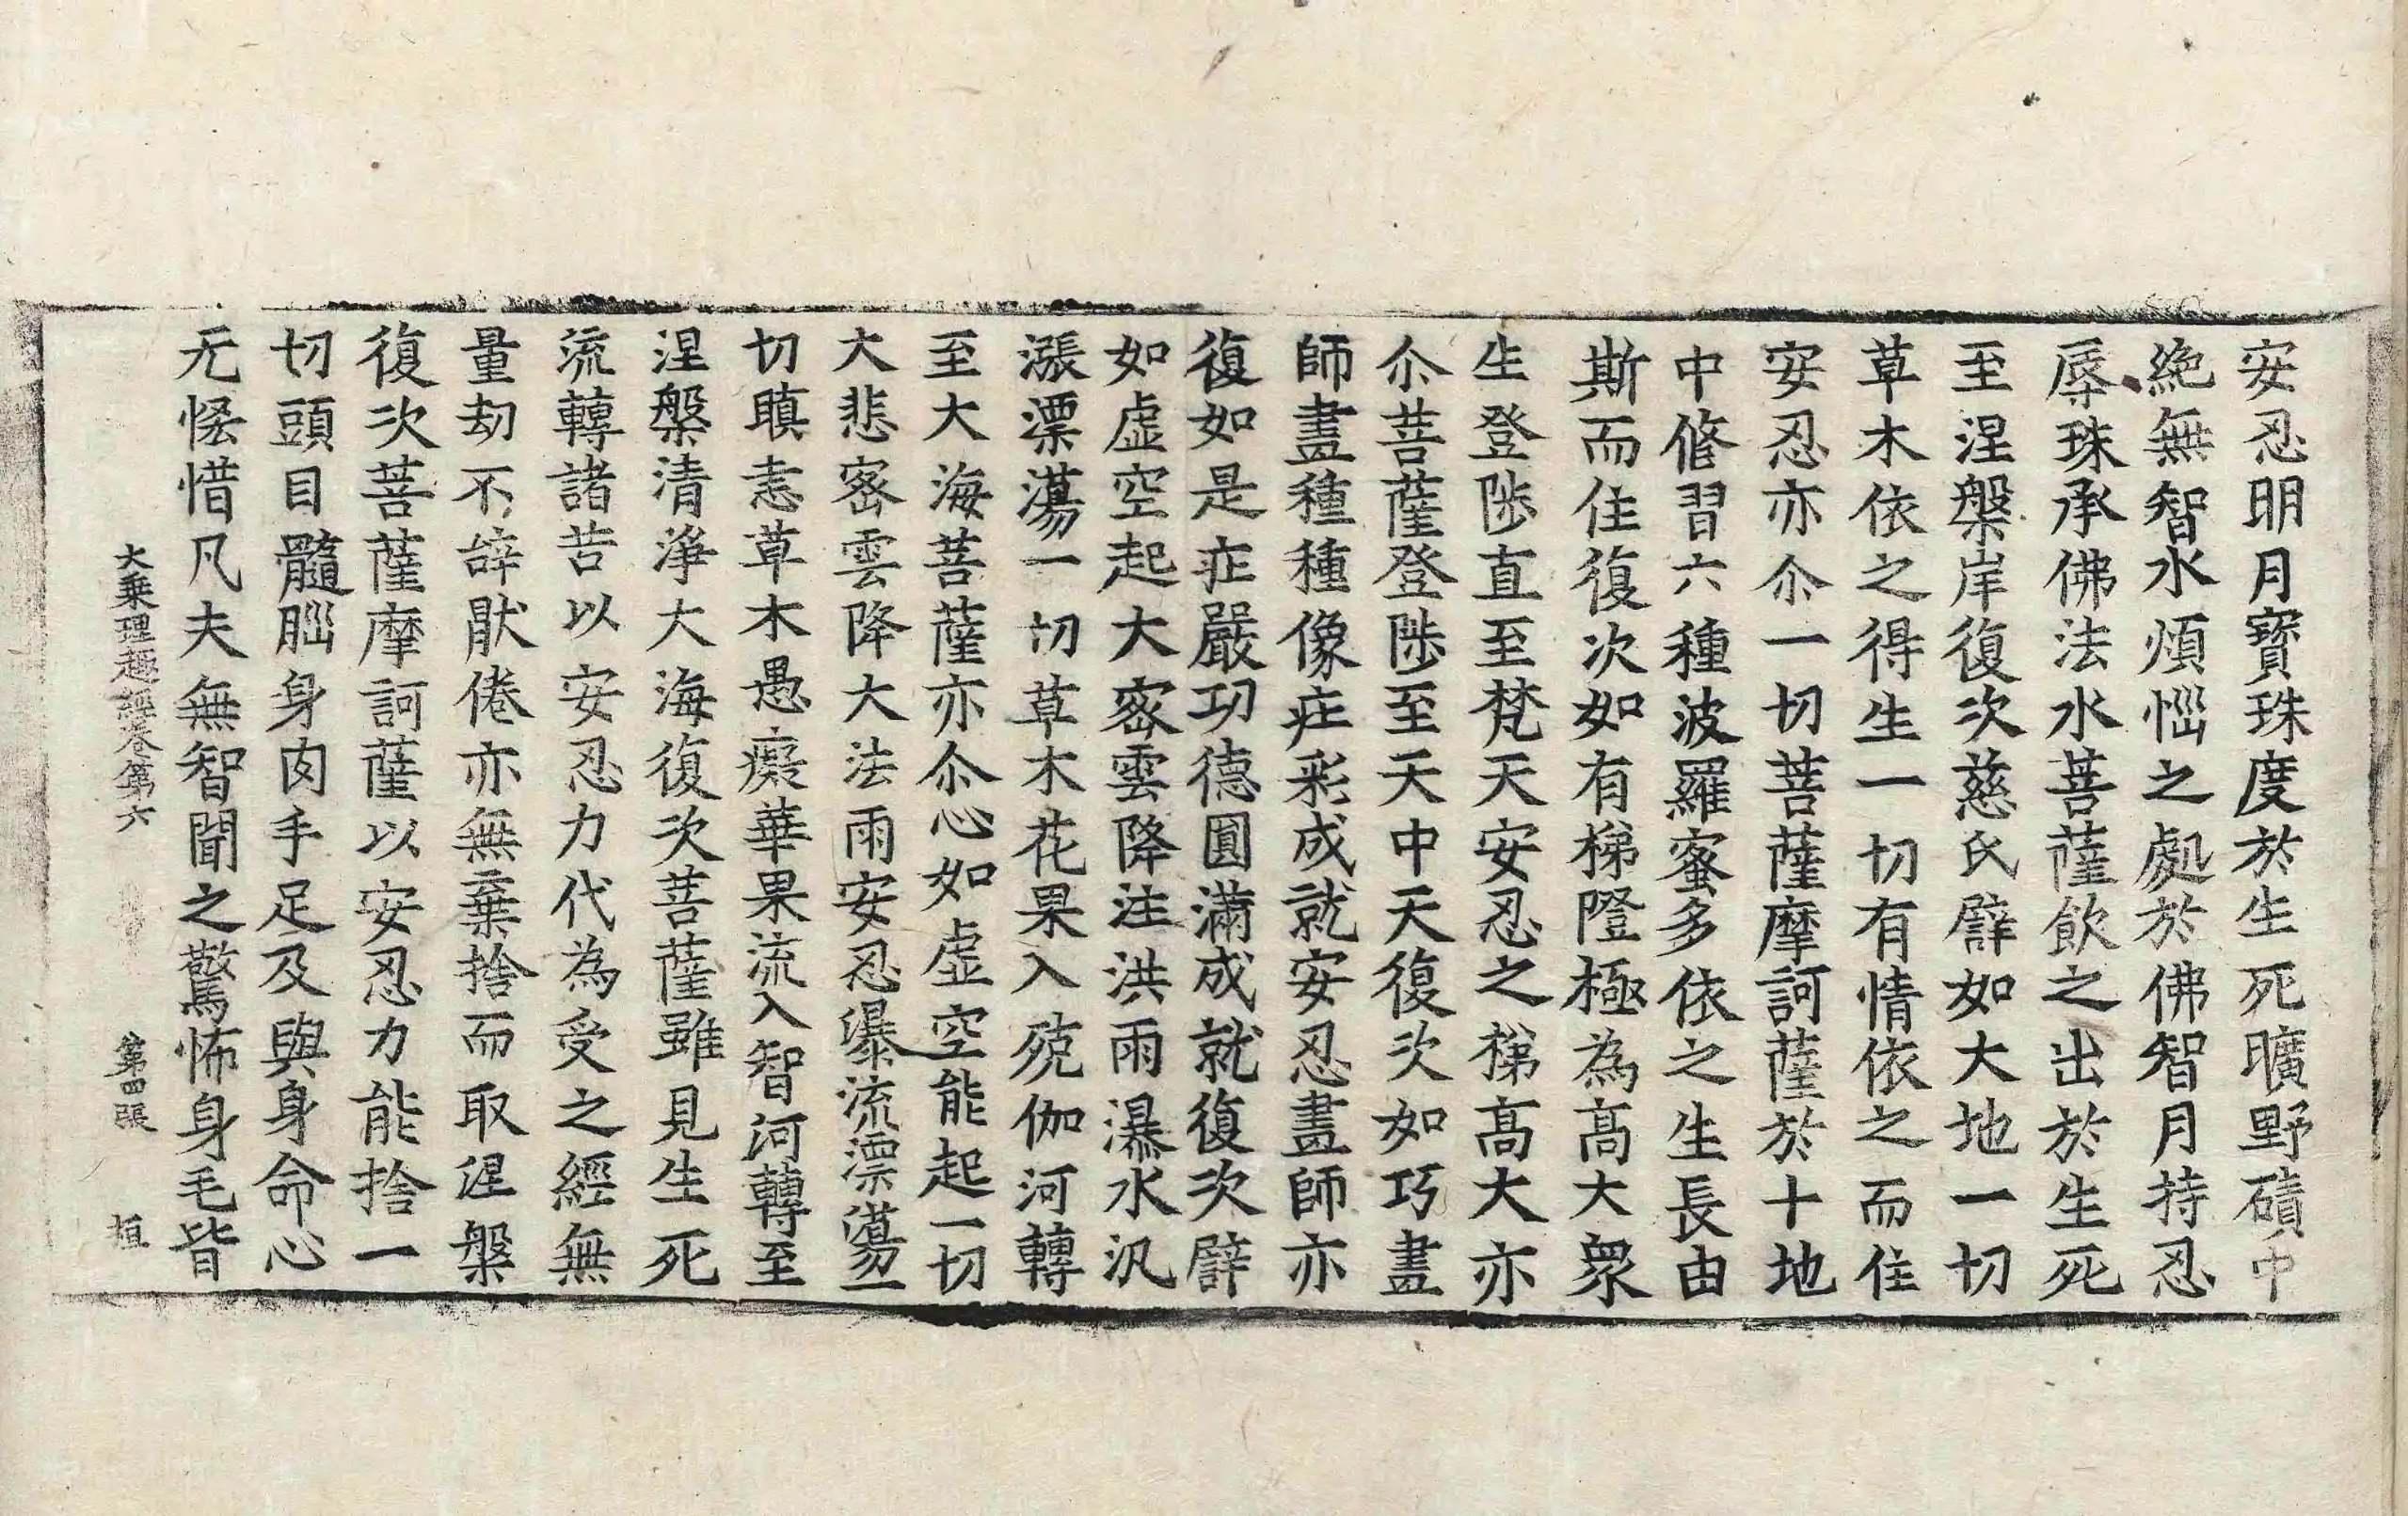 安忍明月寶珠度於生死曠野磧中
絶無智水煩惱之處於佛智月持忍
辱珠承佛法水菩薩飲之出於生死
至涅槃岸復次慈氏譬如大地一切
草木依之得生一切有情依之而住
安忍亦尒一切菩薩摩訶薩於十地
中修習六種波羅蜜多依之生長由
斯而住復次如有梯隥極為高大衆
生登陟直至梵天安忍之梯高大亦
尒菩薩登陟至天中天復次如巧畫
師畫種種像庄彩成就安忍畫師亦
復如是庄嚴功德圓滿成就復次譬
如虛空起大密雲降注洪雨瀑水汎
漲漂蕩一切草木花果入殑伽河轉
至大海菩薩亦尒心如虛空能起一切
大悲密雲降大法雨安忍瀑流漂蕩一
切瞋恚草木愚癡華果流入智河轉至
涅槃清淨大海復次菩薩雖見生死
流轉諸苦以安忍力代為受之經無
量劫不辝猒倦亦無棄捨而取涅槃
復次菩薩摩訶薩以安忍力能捨一
切頭目髓腦身肉手足及與身命心
无恡惜凡夫無智聞之驚怖身毛皆
大乘理趣經卷第六 第四張 垣